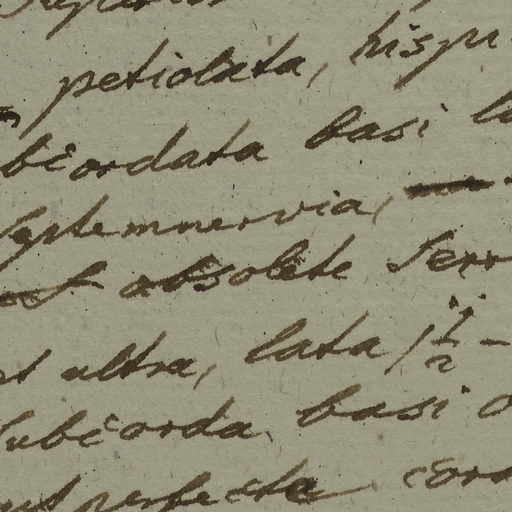 petiolata, hispi
bcordata basi
septemnervia,
obsolete serr
ultra, lata 1 1/2 -
subcorda basi
perfecte cord